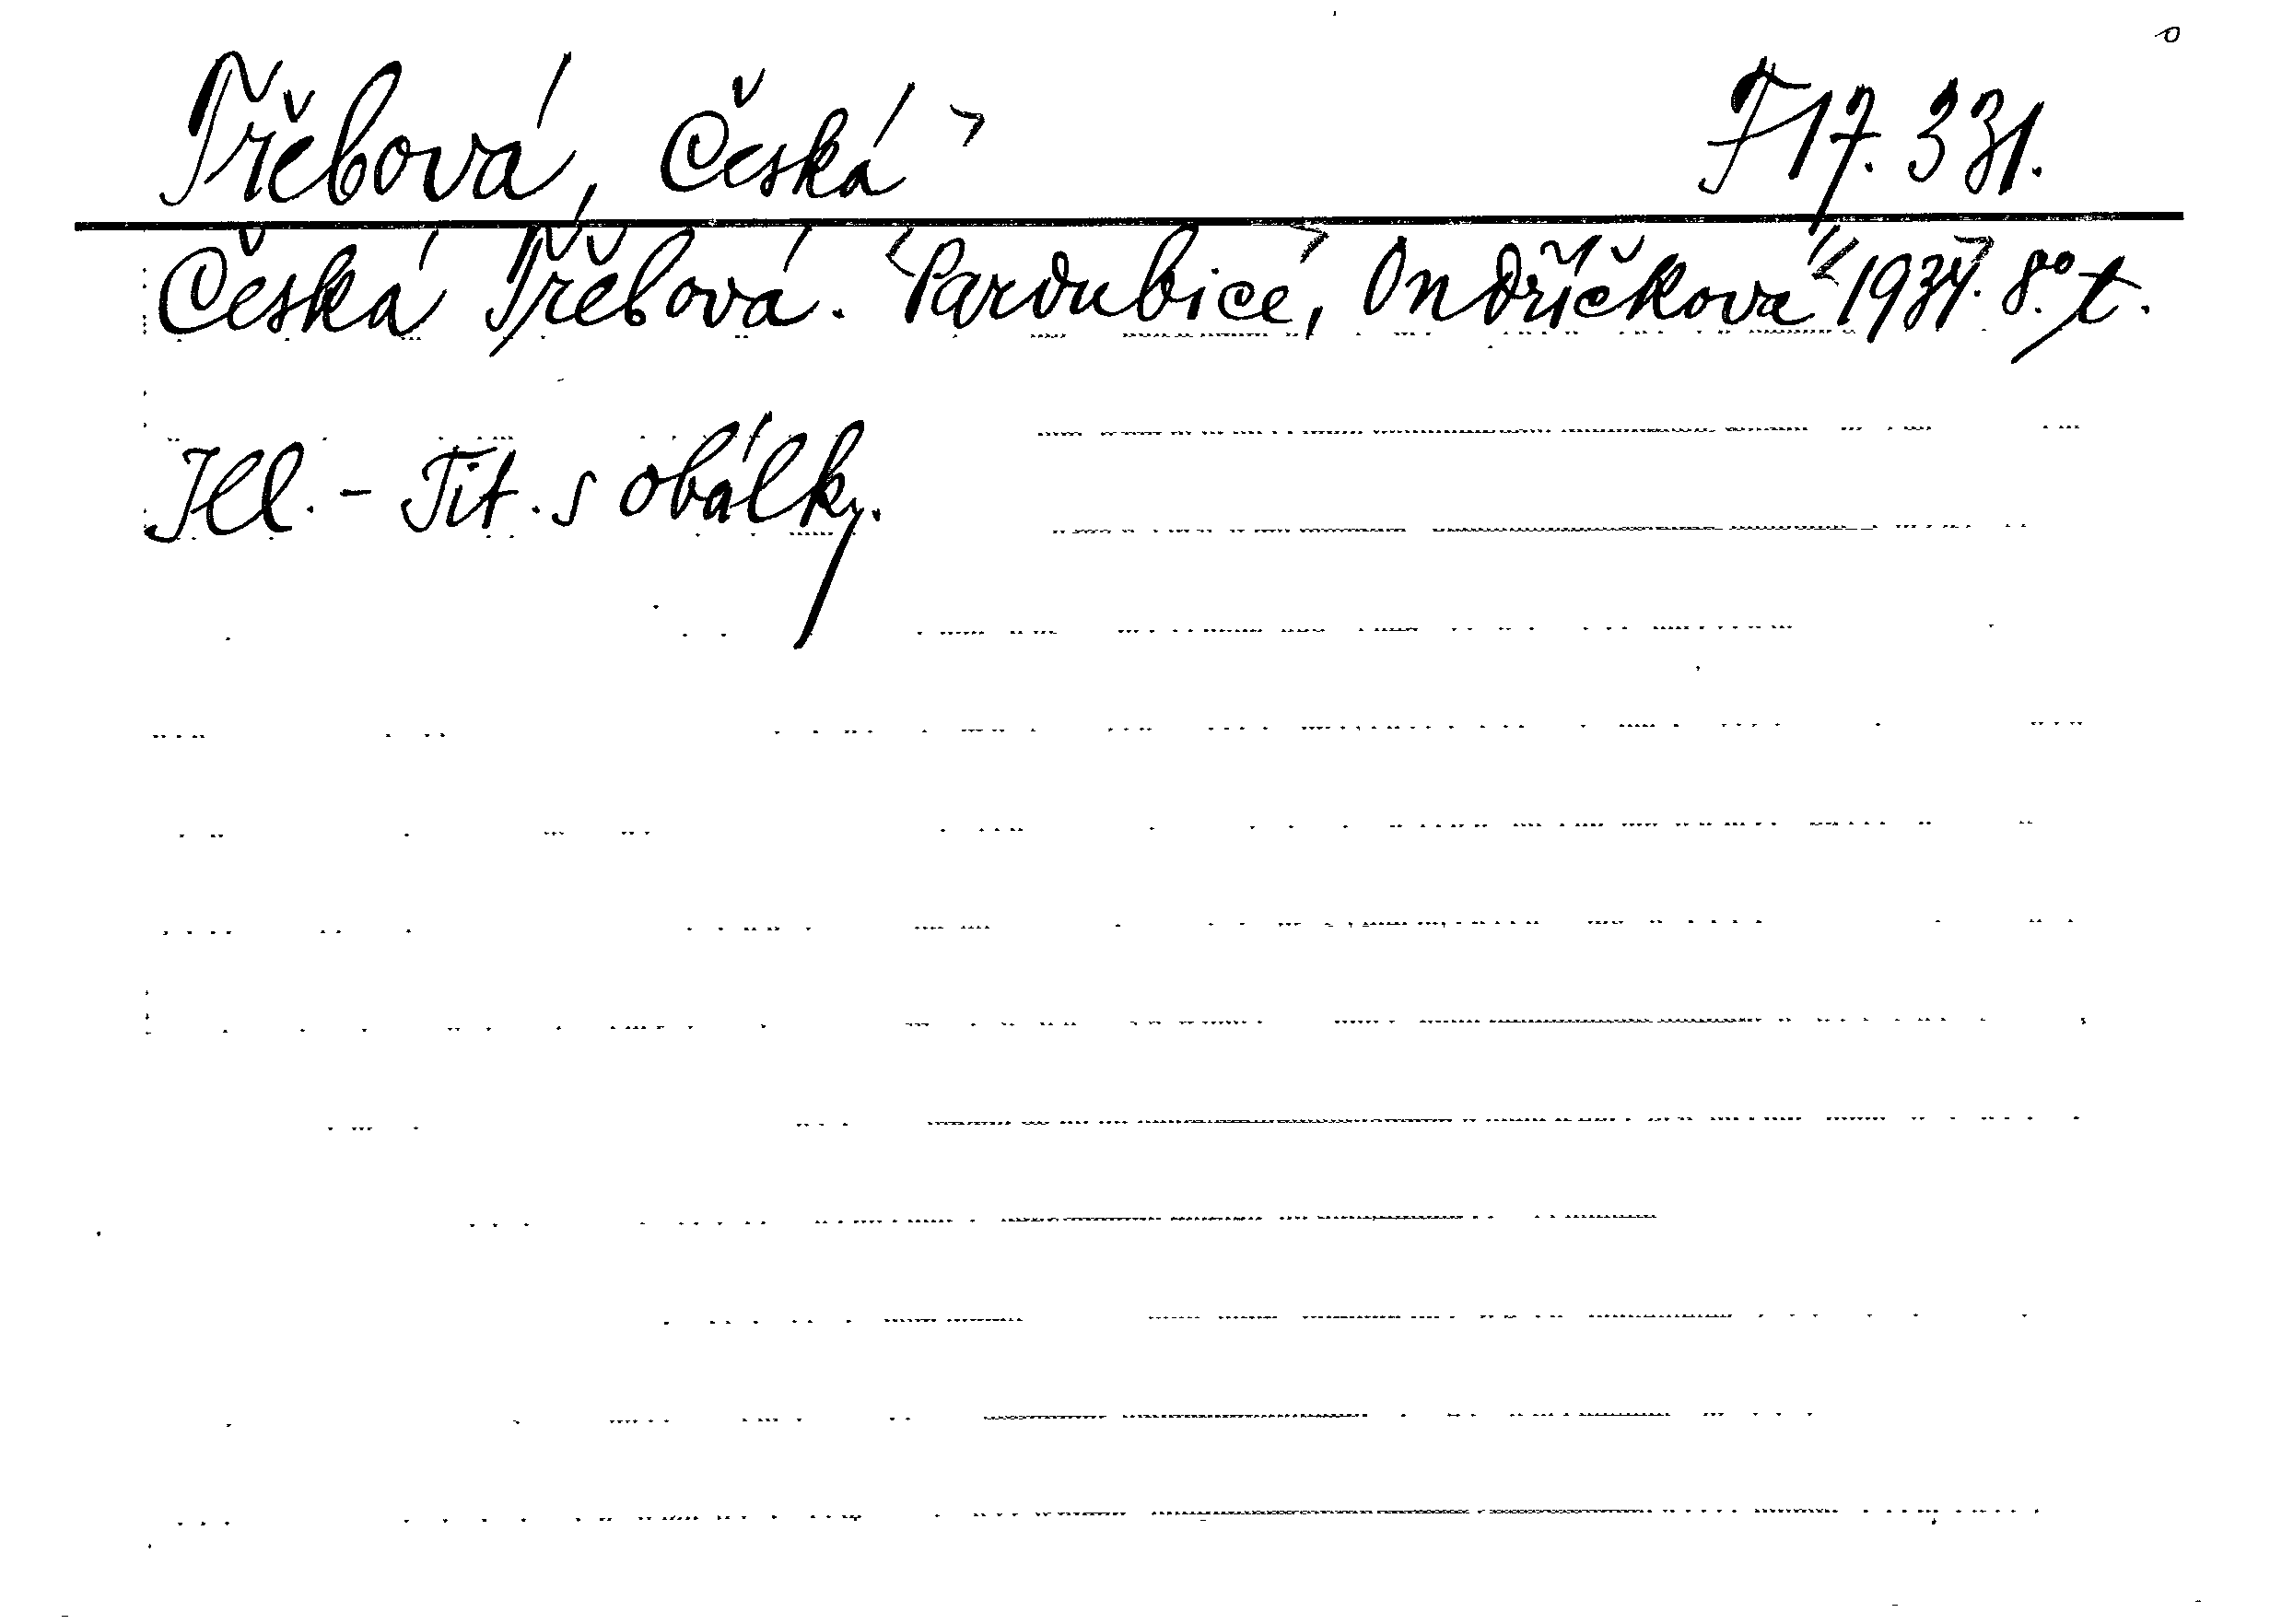 Třebová, Česká > F 17.331.
Česká Třebová. <Pardubice>, Ondříčkova <193
8° t.
Ill. - Tit. s obálky.